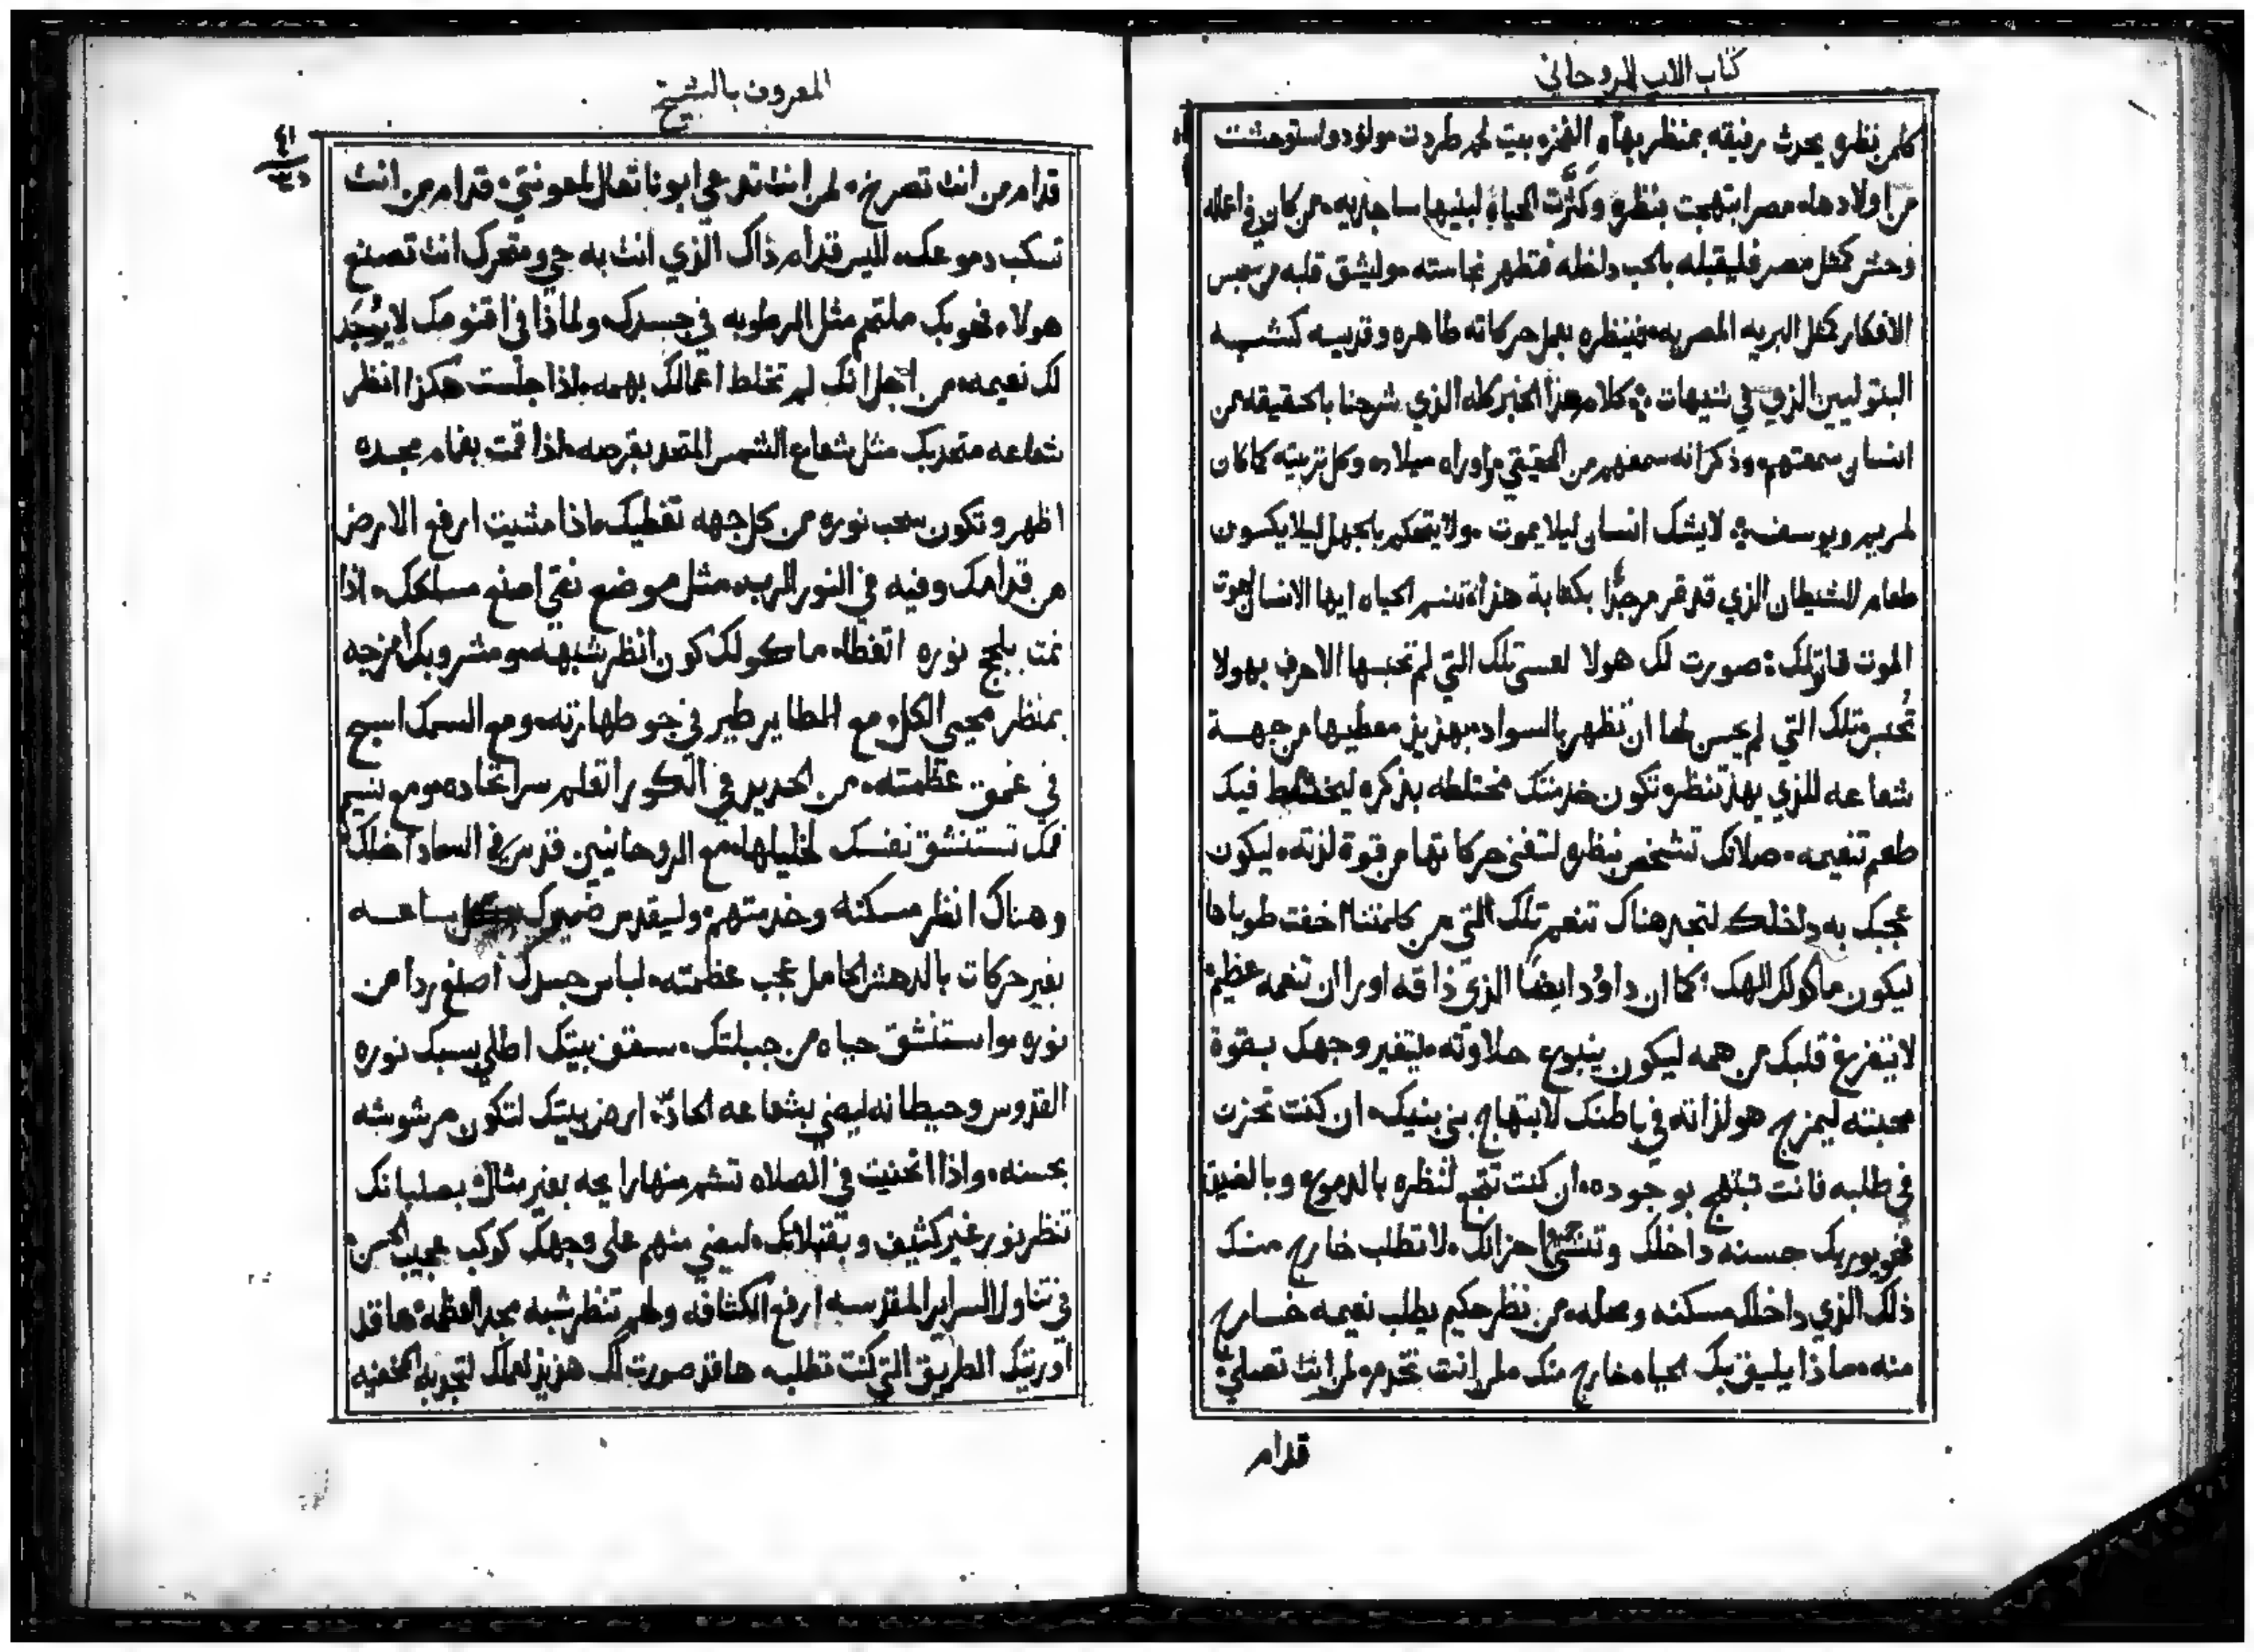 كتاب الاب الروحاني
كلمن نظره يحدث رفيقه بمنظر بهاه الفخره بيت لحم طردت مولود واستوحشت
من اولادها مصر ابتهجت بنظره وكثرت الحياة لبنيها ساجديه من كان في اعماله
وحش كمثل مصر فليقبله بالحب داخله فتطهر نجاسته وليشق قلبه من سجس
الافكار كمثل البريه المصريه فينظره يجعل حركاته طاهره وقديسه كشبه
البتوليين الذي في شيهات كلام هذا الخبر كله الذي شرحنا بالحقيقه من
انسان سمعتهم وذكر انه سمعهم من الحقيقي واوراه ميلاده وكل تربيته كما كان
لمريم ويوسف لا يشك انسان ليلا يموت ولا يتحكم بالجهل ليلا يكون
طعام للشيطان الذي قد قرمر جدا بكتابة هذا تنسم الحياه ايها الانسان لموت
الموت قاتلك صورت لك هولا لعسى تلك التي لم تحبسها الاحرف بهولا
تحتبس وتلك التي لم يحسن لها ان تظهر بالسواد بهذين معطيها من جهة
شعاعه للذي بهذ تنظره تكون خدمتك مختلطه بذكره ليختلط فيك
طعم تنعيمه صلاتك تشخص بنظره لتغنى حركاتها من قوة لذته ليكون
عجبك به داخلك لتجد هناك تنعم تلك التي من كلمتنا اخفت طوباها
ليكون ماكولك الهك كما ان داوود ايضا الذي ذاقه اورا ان تنعمه عظيم
لا يتفرغ قلبك من همه ليكون ينبوع حلاوته ليتغير وجهك بقوة
محبته ليمزج هو لذاته في باطنك لابتهاج بني بنيك ان كنت تحزن
في طلبه فانت تبتهج بوجوده ان كنت تتجع لنظره بالدموع وبالضيق
فهو يوريك حسنه داخلك وتنسى احزانك لا تطلب خارج منك
ذلك الذي داخلك مسكنه ومحله من نظر حكيم يطلب نعيمه خارج
منه ماذا يليق بك الحياه خارج منك لمن انت تخدم ولمن انت تصلي
قدام
المعروف بالشيخ
٤١
قدام من انت تصرخ لمن انت تدعي ابونا تعال لمعونتي قدام من انت
تسكب دموعك اليس قدام ذاك الذي انت به حي ومتحرك انت تصنع
هولاء فهو بك ملتحم مثل الرطوبه في جسدك ولماذا في اقنومك لا يوجد
لك نعيمه من اجل انك لم تخلط اعمالك بهمه اذا جلست هكذا انظر
شعاعه متحد بك مثل شعاع الشمس المتحد بقرصه اذا قمت بغمام مجده
اظهر وتكون سحب نوره من كل جهه تغطيك اذا مشيت ارفع الارض
من قدامك وفيه في النور المربد مثل موضع نقي اصنع مسلكك اذا
نمت بلجج نوره اتغطا ماكولك كون انظر شبهه ومشروبك امزجه
بمنظر محيي الكل مع الطاير طير في جو طهارته ومع السمك اسبح
في عمق عظمته من الحديد في الكور اتعلم سر اتحاده ومع نسيم
فمك تستنشق نفسك لخليلها مع الروحانيين قدس في السما داخلك
وهناك انظر مسكنه وخدمتهم وليقدس ضميرك كل ساعه
بغير حركات بالدهش الكامل بعجب عظمته لباس جسدك اصنع ردا من
نوره واستنشق حياه من جبلتك سقف بيتك اطلي بسبك نوره
القدوس وحيطانه ليضي بشعاعه الحاد ارض بيتك لتكون مرشوشه
بحسنه واذا انحنيت في الصلاه تشم منها رايحه بغير مثال بصلبانك
تنظر نور غير كثيف وبقبلاتك ليضي منهم على وجهك كوكب عجيب الحسن
في تناول السراير المقدسه ارفع الكثافه ولهم تنظر شبه مجد العظمه ها قد
اوريتك الطريق التي كنت تطلبه ها قد صورت لك هذين لعلك لتجربه الخفيه